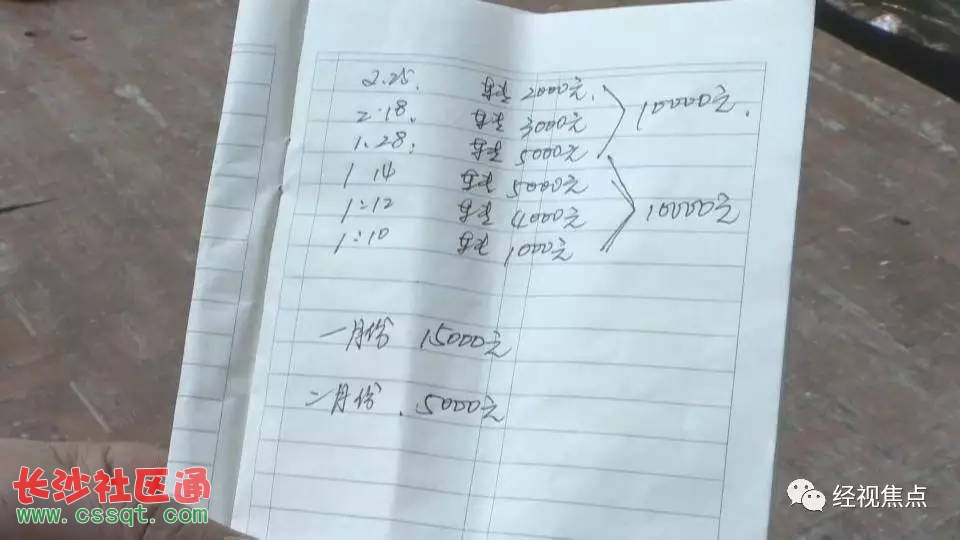 2.25. 2000元.
2.18. 3000元
10000元.
1.28. 5000元
1 14 5000元
1:12 4000元
10000元
1:10 1000元
一月份 15000元
二月份. 5000元
长沙社区通
www.cssqt.com
经视焦点